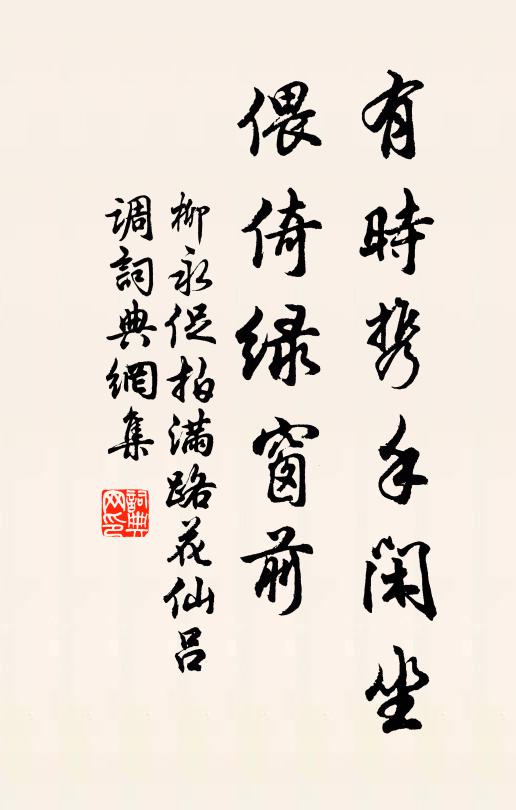 有時携手閑坐
偎倚緑窗前
柳永促拍满路花仙吕
调詞典網集
詞典网印